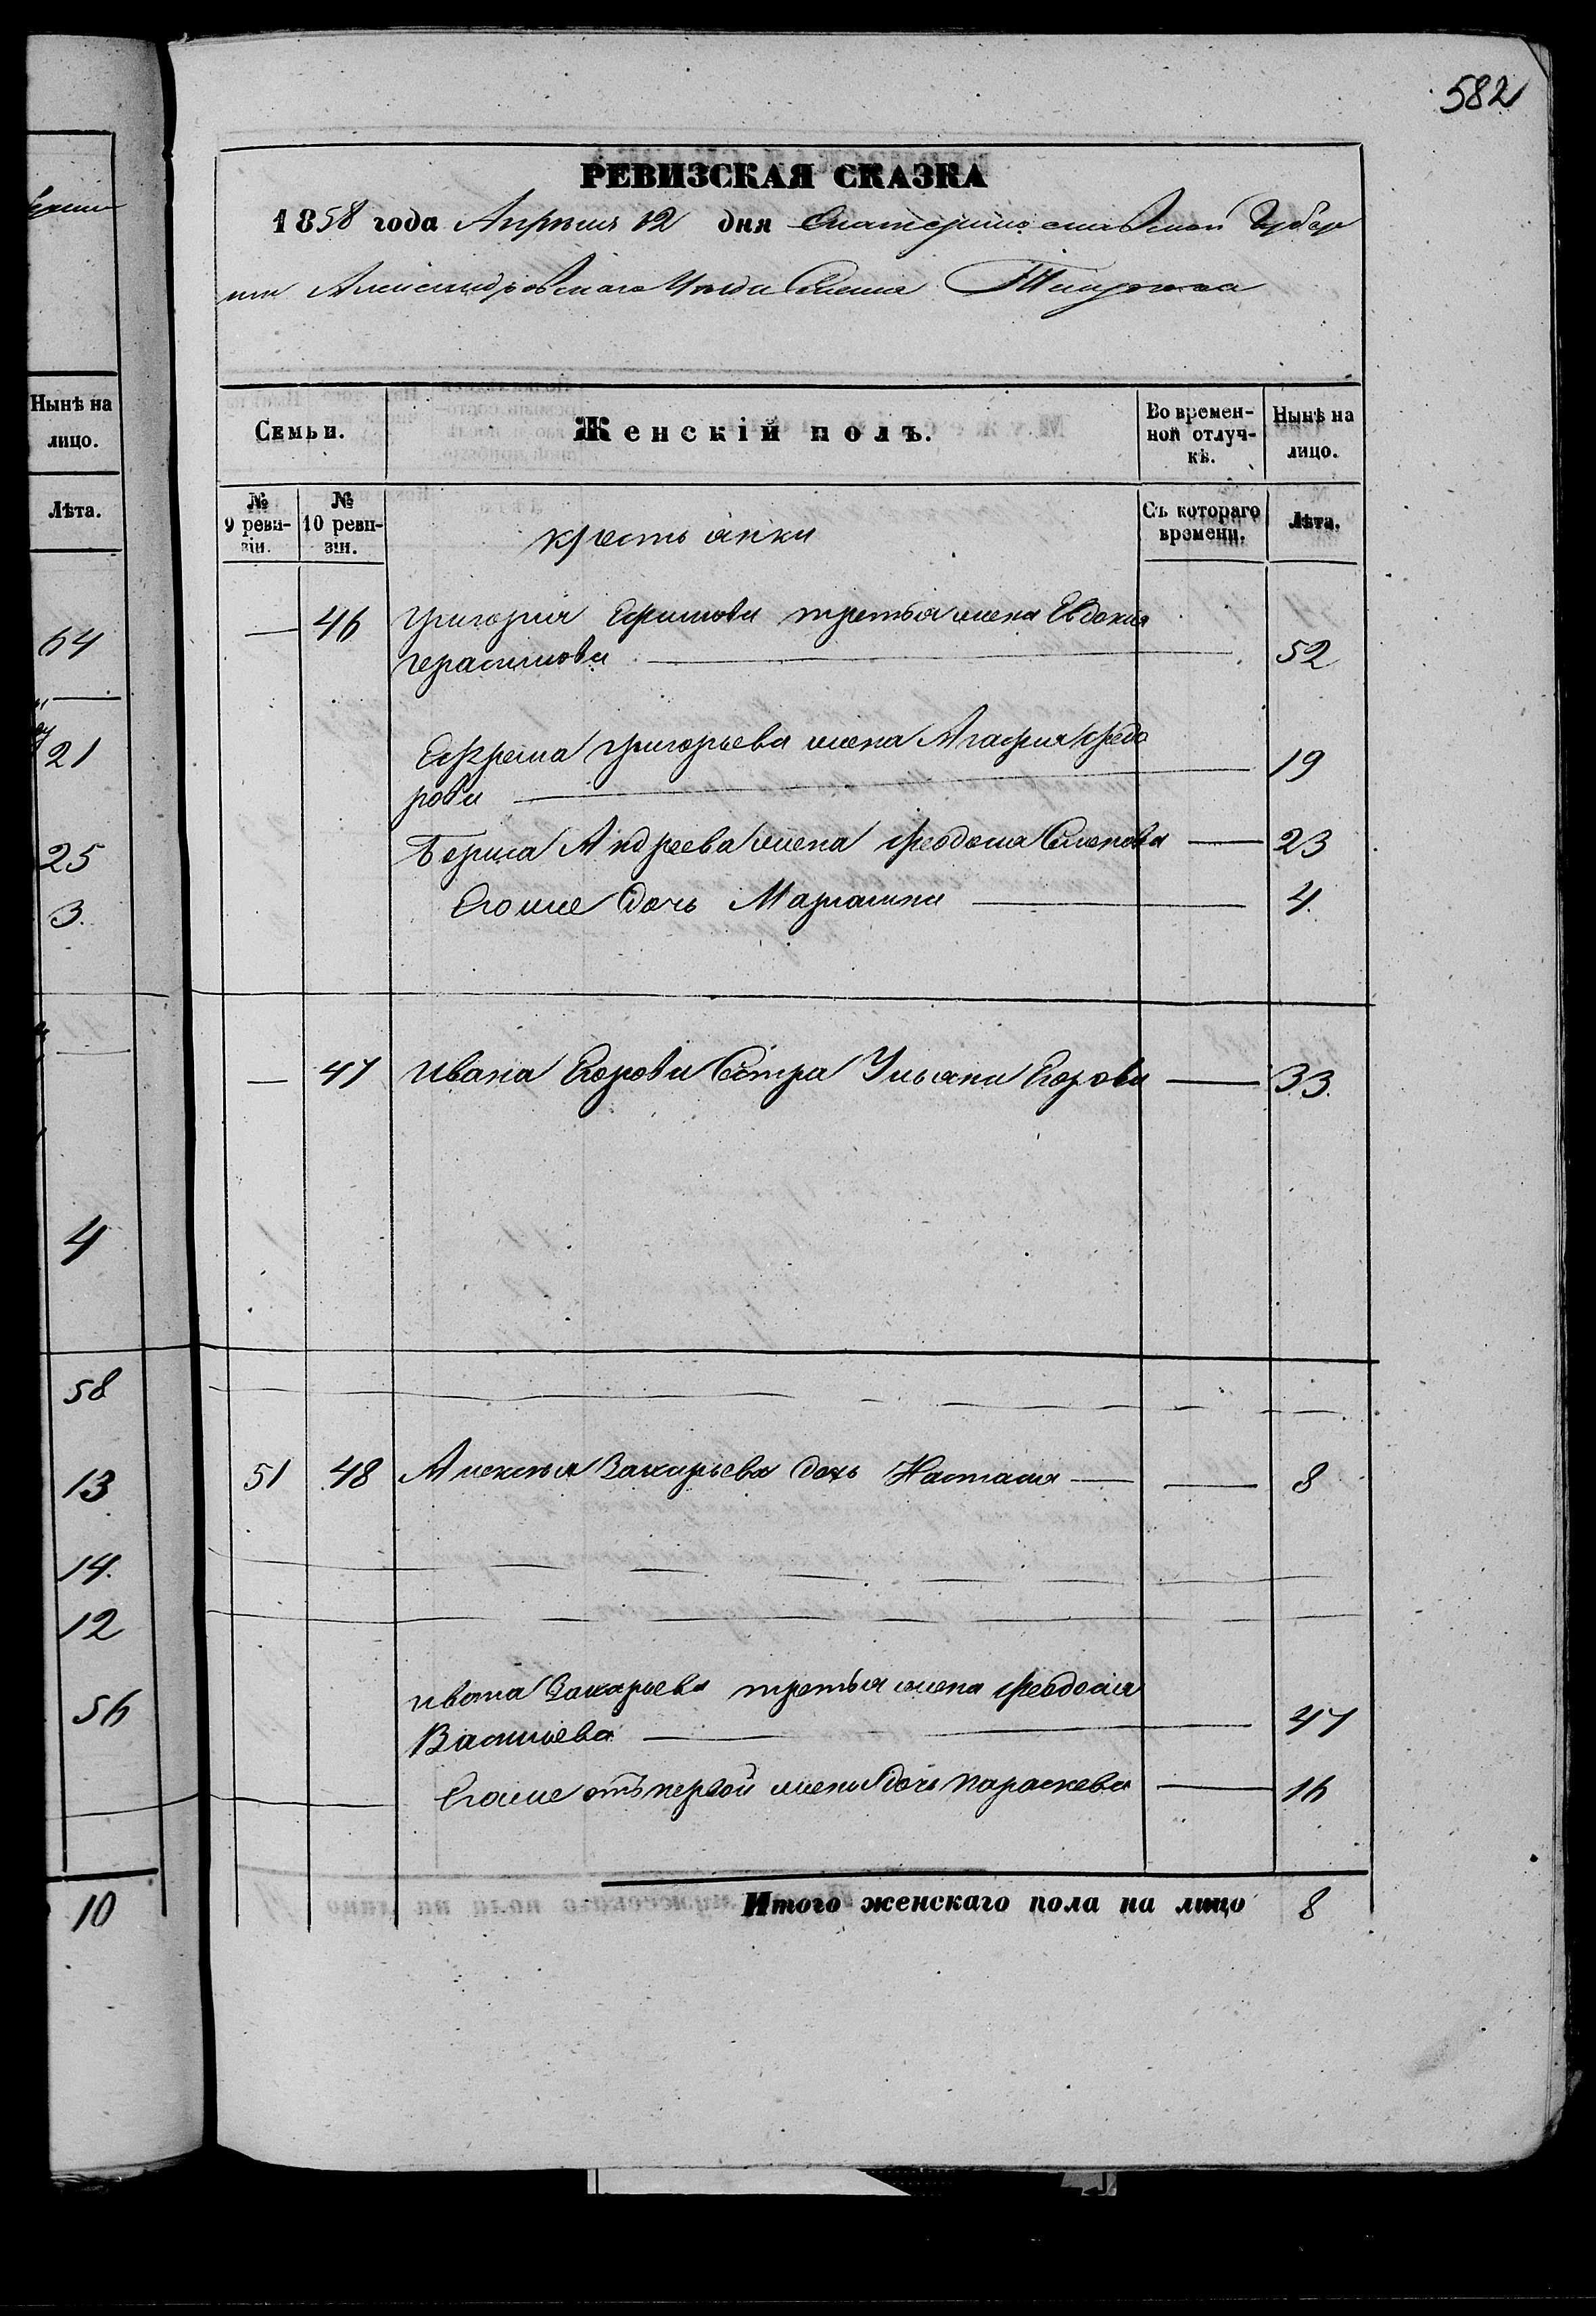 582
РЕВИЗСКАЯ СКАЗКА
1858 года Апреля 12 дня Екатеринославской Губер
нии Александровскаго Уезда Села
Нынѣ на лицо.
Лѣта.
64
21
25
3.
4
58
13
14.
12
56
10
Семьи.
Женскій полъ.
Во времен-
ной отлуч-
кѣ.
Нынѣ на
лицо.
№
9 реви-
зіи.
№
10 реви-
зіи.
крестьянки
Съ котораго
времени.
Лѣта.
— 46 Григорія Ефимова третья жена Евдокия
Герасимова — 52
Ефрема Григорьева жена Агафия Федо
рова — 19
Бориса Андреева жена Феодосия Семенова — 23
Его же дочь Мариамна — 4.
— 47 Ивана Егорова Сестра Ульяна Егорова — 33.
51 48 Алексѣя Захарьева дочь Настасия — 8
Ивана Захарьева третья жена Феодосия
Васильева — 47
Его же отъ первой жены дочь Параскева — 16
Итого женскаго пола на лицо 8